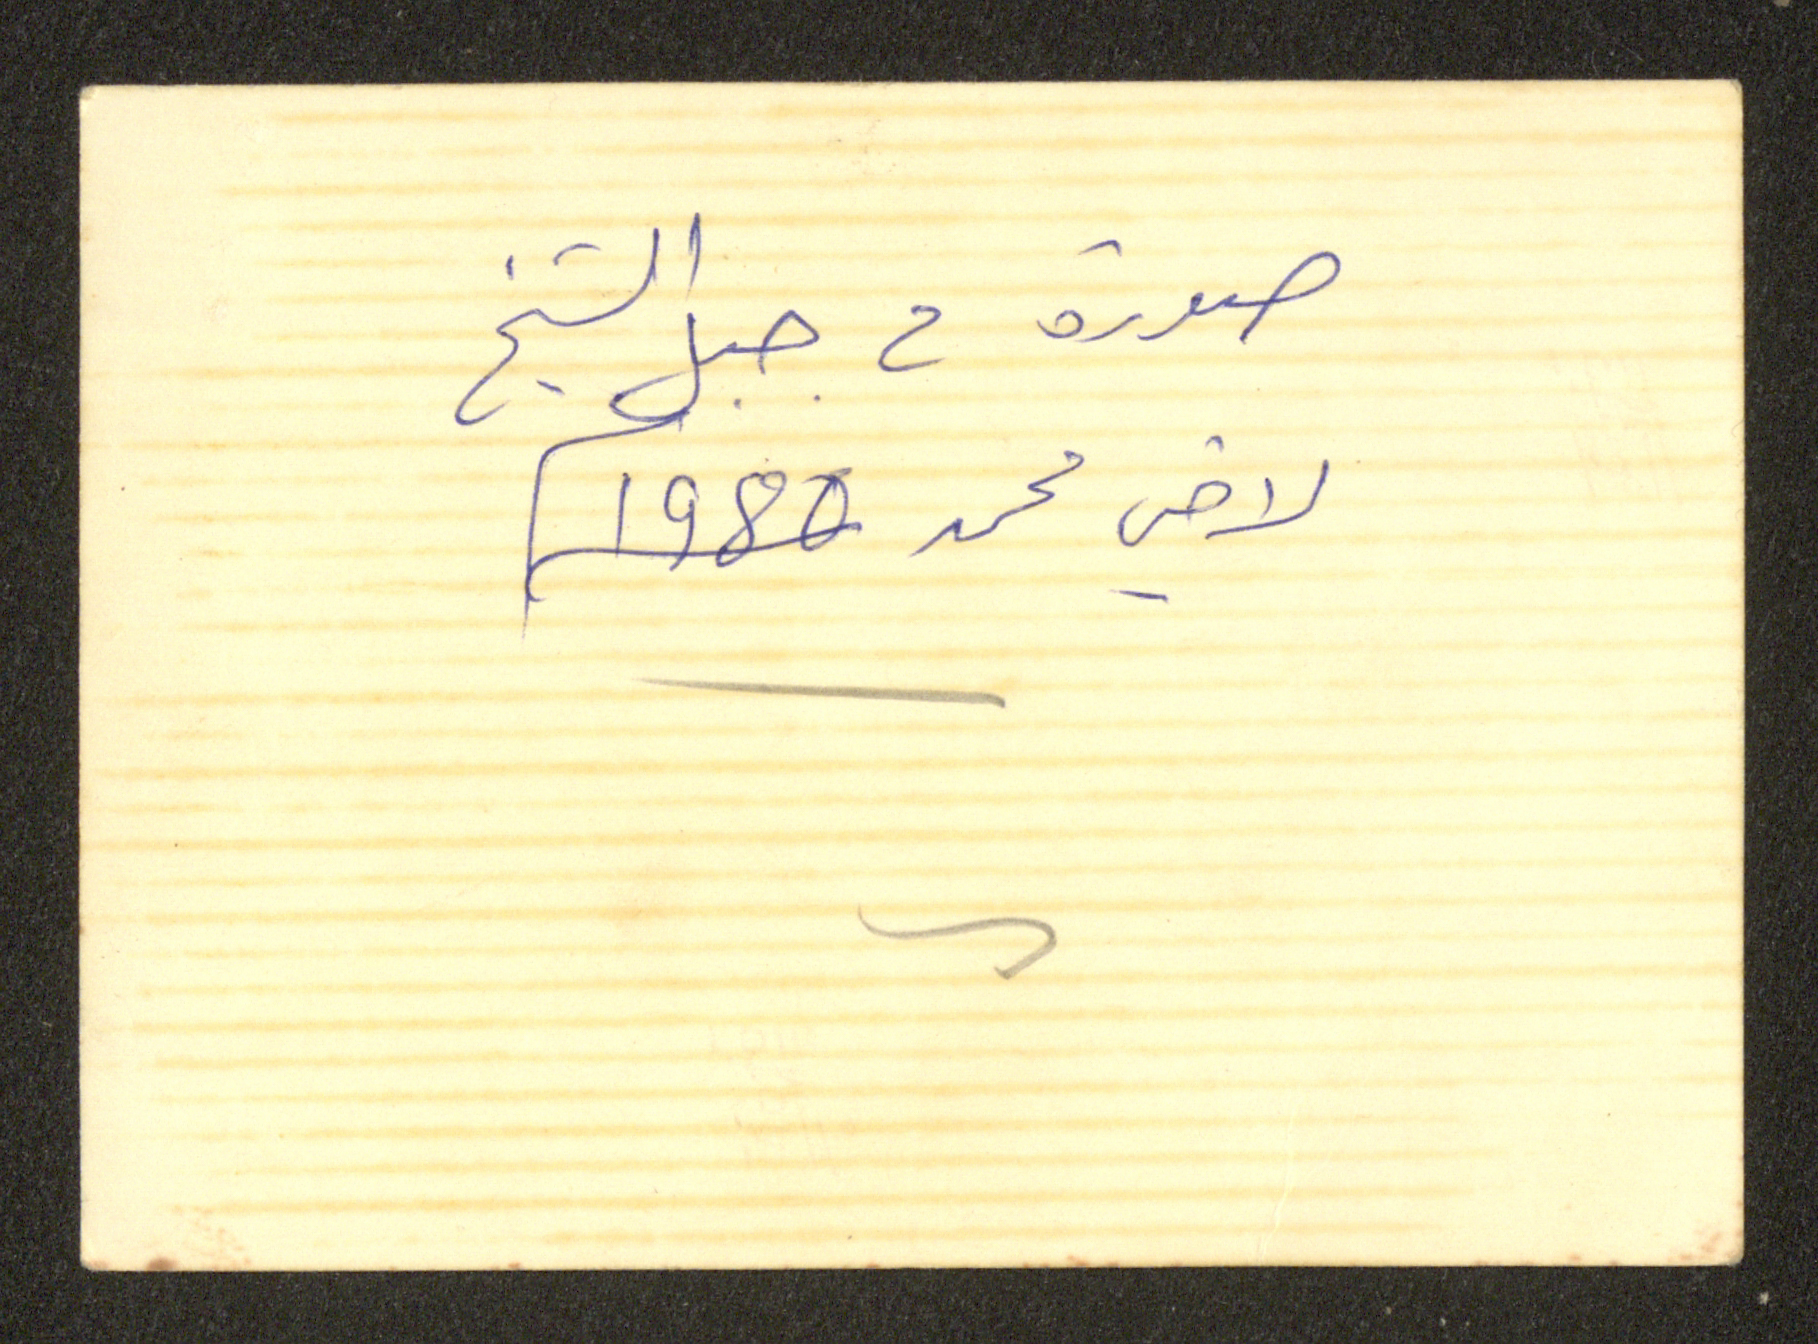 صورة ع جبل الشيخ
لاخي محمد 1980